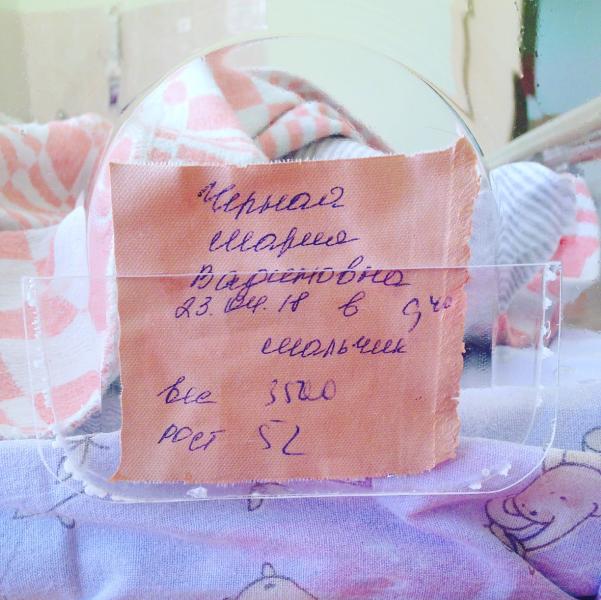 Черная
Мария
Вадимовна
23.04.18 в 9,40
мальчик
вес 3500
рост 52